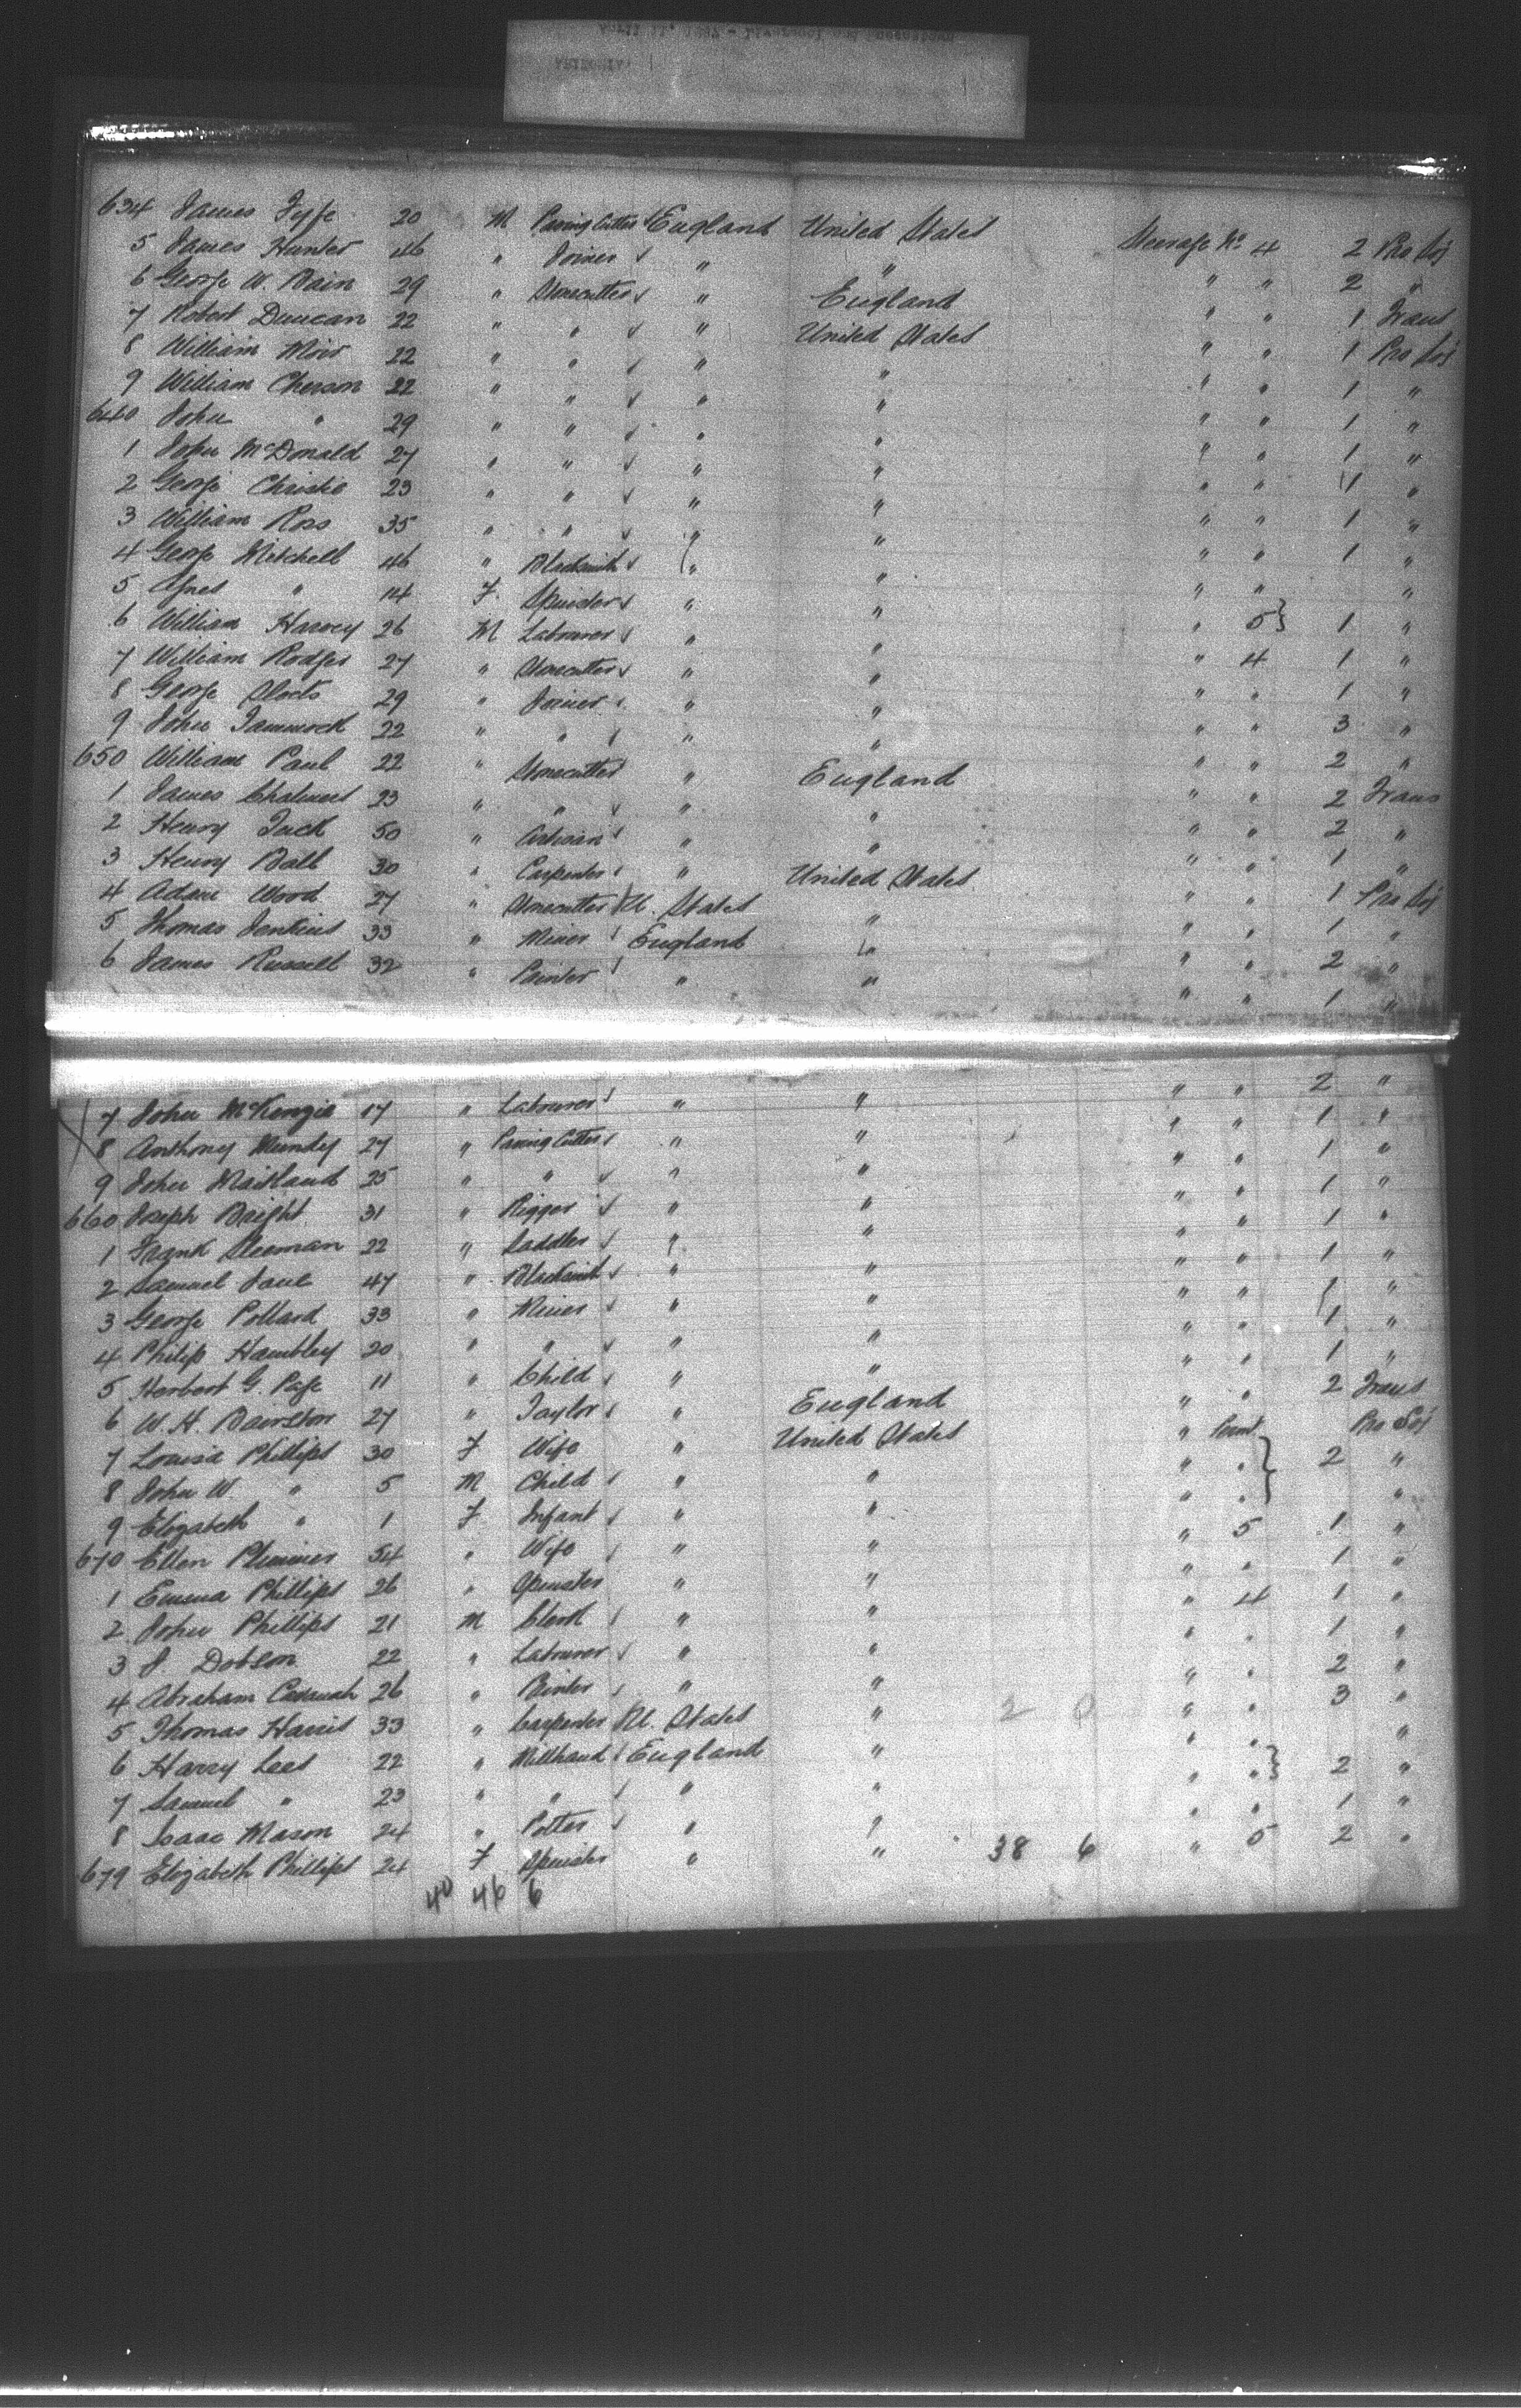 634 James Fyfe 20 M Paving Cutter England United States Steerage No 4 2 Pro Soj
5 James Hunter 46 " Joiner " " " " 2 "
6 George W. Bain 29 " Stonecutter " England " " 1 Trans
7 Robert Duncan 22 " " " United States " " 1 Pro Soj
8 William Moir 22 " " " " " " 1 "
9 William Cherson 22 " " " " " " 1 "
640 John " 29 " " " " " " 1 "
1 John McDonald 27 " " " " " " 1 "
2 George Christie 23 " " " " " " 1 "
3 William Ross 35 " " " " " " 1 "
4 George Mitchell 46 " Blacksmith " " " " "
5 Agnes " 14 F Spinster " " " 5 } 1 "
6 William Harvey 26 M Labourer " " " 4 1 "
7 William Rodger 27 " Stonecutter " " " " 1 "
8 George 29 " Joiner " " " " 3 "
9 John Jammock 22 " " " " " " 2 "
650 William Paul 22 " Stonecutter " England " " 2 Trans
1 James Chalmers 23 " " " " " " 2 "
2 Henry Jack 50 " Artisan " " " " 1 "
3 Henry Ball 30 " Carpenter " United States " " 1 Pro Soj
4 Adam Wood 27 " Stonecutter U. States " " " 1 "
5 Thomas Jenkins 33 " Miner England " " " 2 "
6 James Russell 32 " Painter " " " " 1 "
7 John McKenzie 17 " Labourer " " " " 2 "
8 Anthony Mundy 27 " Paving Cutter " " " " 1 "
9 John Maitland 25 " " " " " " 1 "
660 Joseph Bright 31 " Rigger " " " " 1 "
1 Frank Sleeman 22 " Saddler " " " " 1 "
2 Samuel 47 " Blacksmith " " " " 1 "
3 George Pollard 33 " Miner " " " " 1 "
4 Philip Hambley 20 " " " " " " 1 "
5 Herbert G. Page 11 " Child " " " " 1 "
6 W. H. Bairstow 27 " Taylor " England " " 2 Trans
7 Louisa Phillips 30 F Wife " United States " Pro Soj
8 John W. " 5 M Child " " " " } 2 "
9 Elizabeth " 1 F Infant " " " " "
670 Ellen Plummer 54 " Wife " " " 5 1 "
1 Emma Phillips 26 " Spinster " " " " 1 "
2 John Phillips 21 M Clerk " " " 4 1 "
3 J. Dobson 22 " Labourer " " " " 1 "
4 Abraham 26 " " " " " 2 "
5 Thomas Harris 33 " Carpenter U. States " 2 0 " " 3 "
6 Harry Lees 22 " Millhand England " " " "
7 Samuel " 23 " " " " " " } 2 "
8 Isaac Mason 24 " Potter " " " " 1 "
679 Elizabeth Phillips 24 F Spinster " " 38 6 " 5 2 "
40 46 6